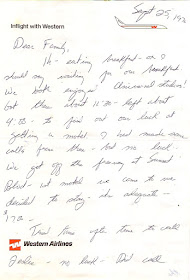 Inflight with Western
Sept 25, 192
Dear Family,
It - eating breakfast - or I
should say waiting for our breakfast.
We both enjoyed Universal studios!
Got there about 11:30 - left about
4:30 - to find out our luck at
getting a motel. I had made some
calls from there - but no luck.
We got off the freeway at Sunset
Blvd - at motel we came to we
decided to stay - adequate -
$170 -
Tried time after time to call
- no luck - Did call
Western Airlines